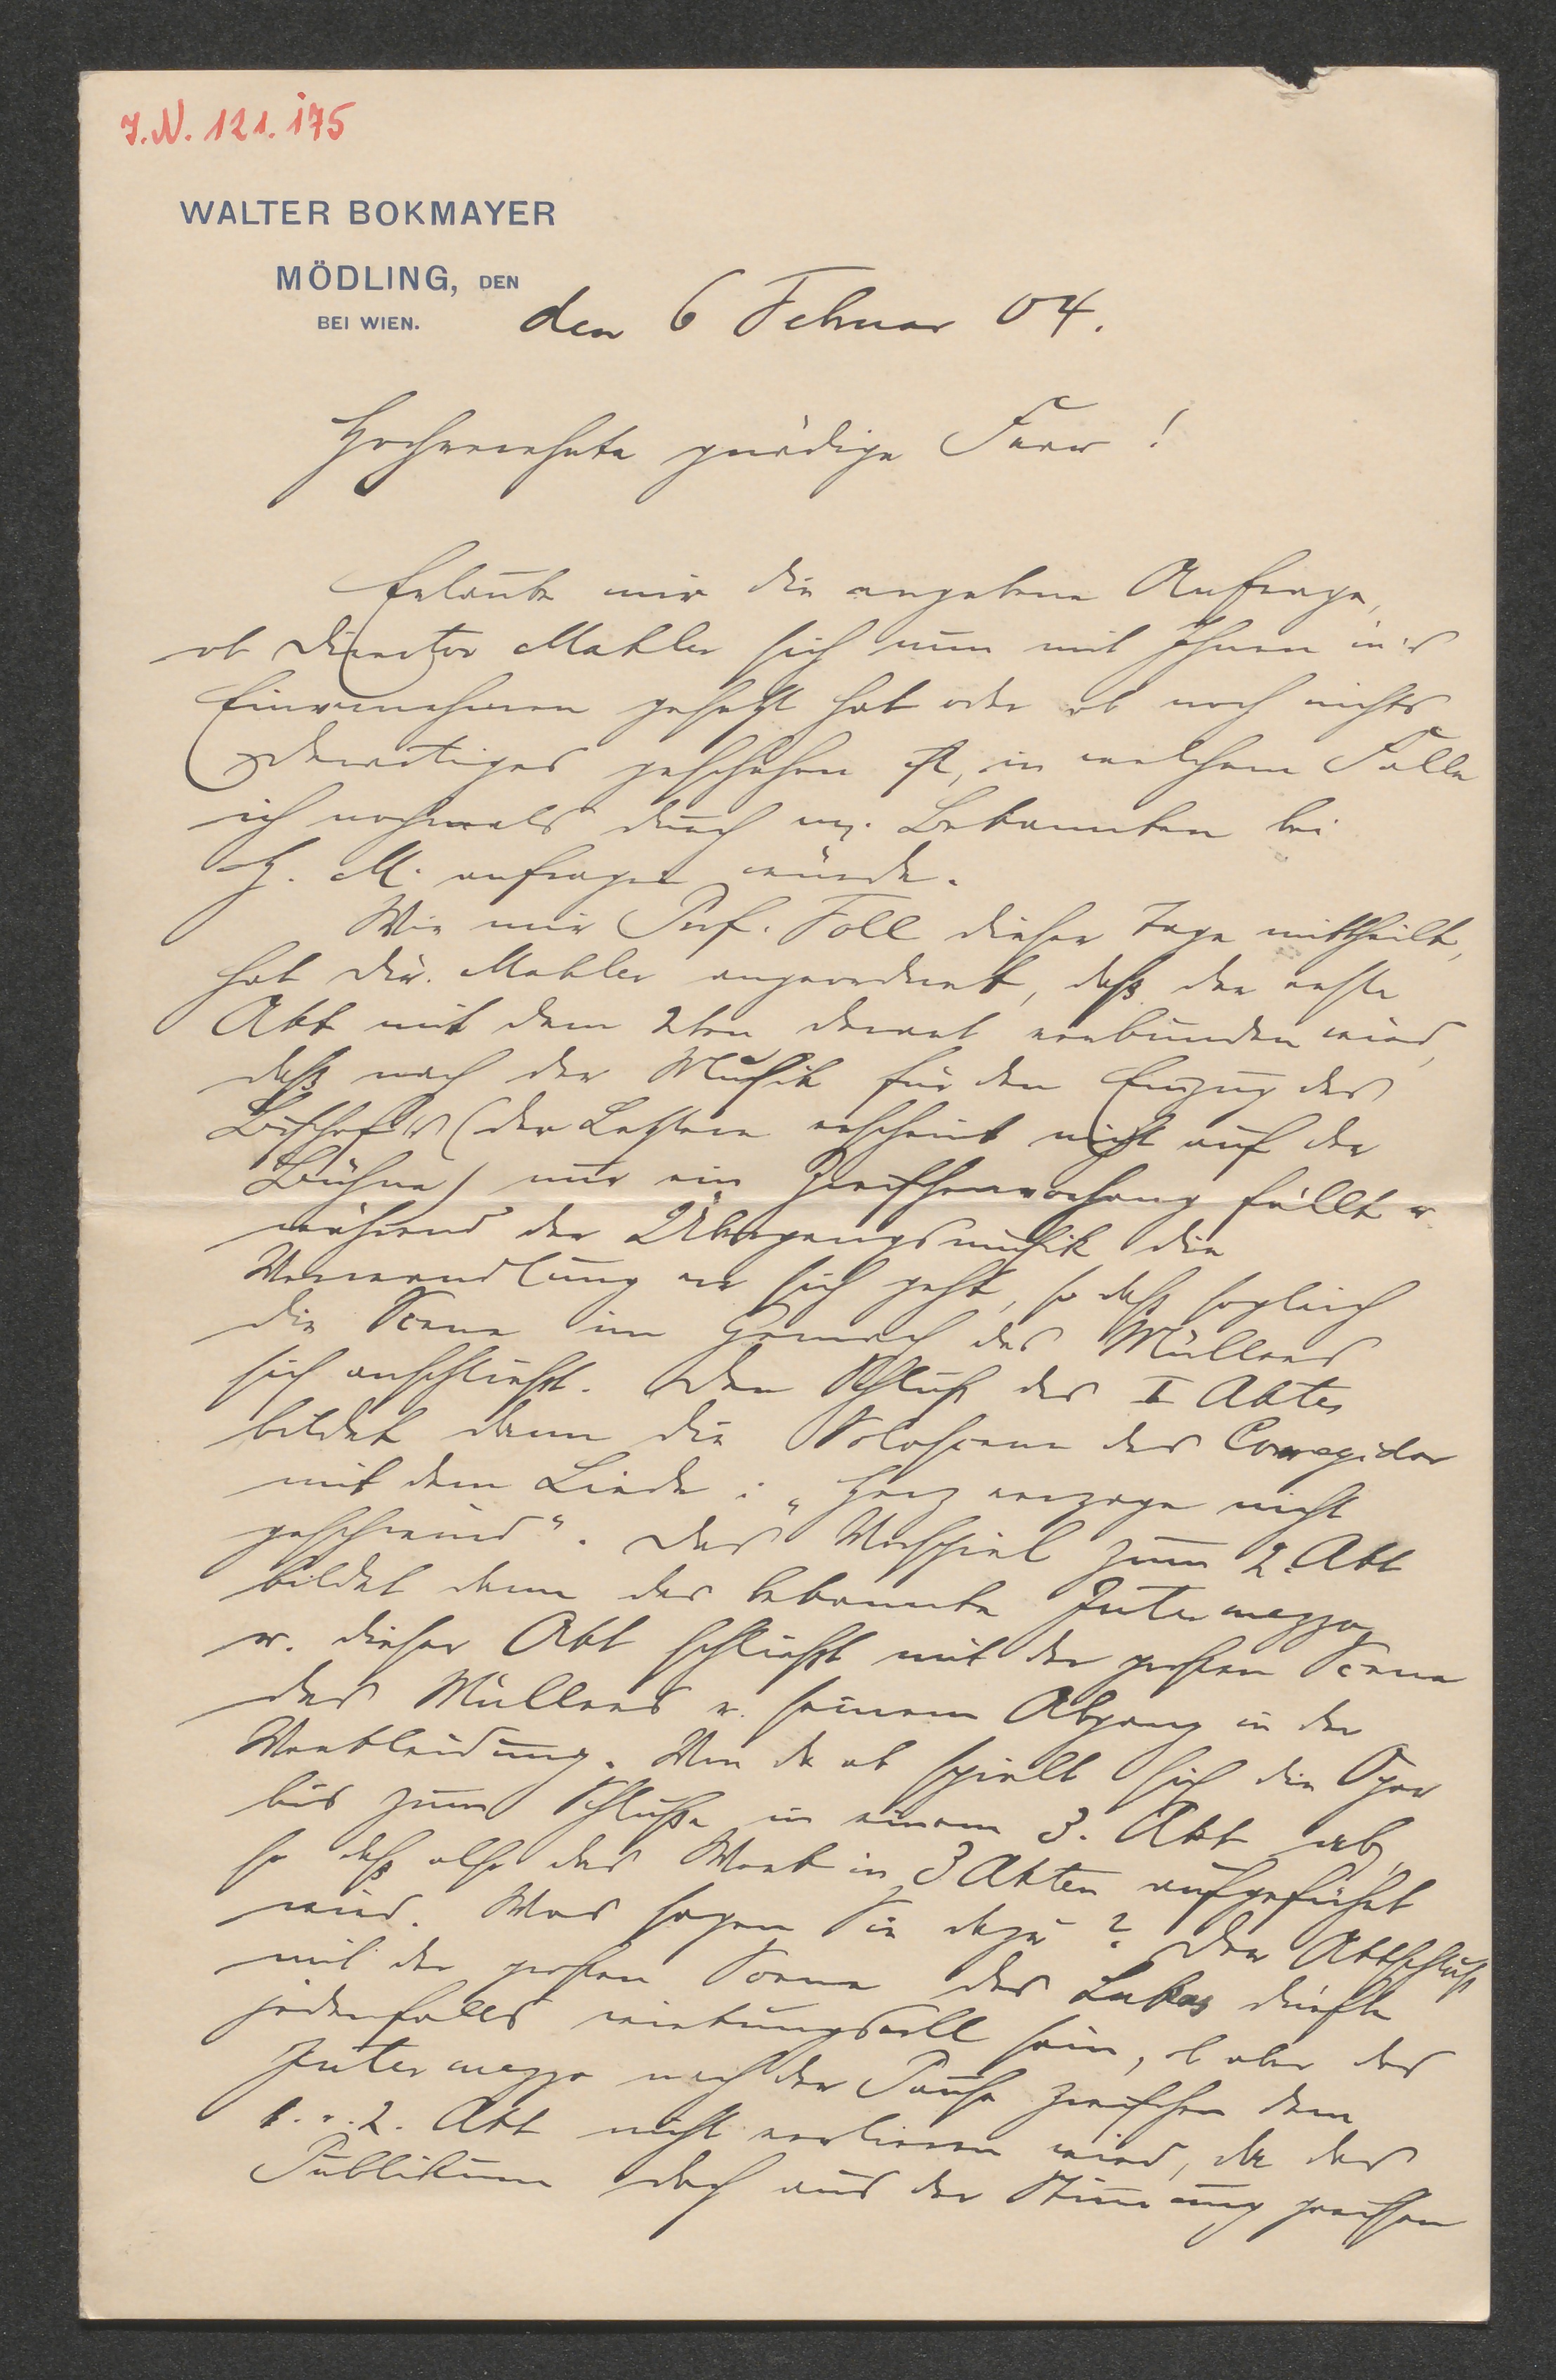 J.N. 121.175
WALTER BOKMAYER
MÖDLING, DEN
BEI WIEN.
den 6 Februar 04.
Hochverehrte gnädige Frau!
Erlaube mir die ergebene Anfrage,
ob Director Mahler sich nun mit Ihnen in's
Einvernehmen gesetzt hat oder ob noch nichts
derartiges geschehen ist, in welchem Falle
ich nochmals durch m. Bekannten bei
H. M. anfragen würde.
Wie mir Prof. Foll dieser Tage mittheilt,
hat Dir. Mahler angeordnet, daß der erste
Akt mit dem 2ten derart verbunden wird,
daß nach der Musik für den Einzug des
Bischofs (der Letztere erscheint nicht auf der
Bühne) nur ein Zwischenvorhang fällt u.
während der Übergangsmusik die
Verwandlung vor sich geht, so daß sogleich
die Scene im Gemach des Müllers
sich anschließt. Den Schluß des I Aktes
bildet dann die Soloscene des Corregidor
mit dem Liede: „Herz verzage nicht
geschwind“. Das Vorspiel zum 2. Akt
bildet dann das bekannte Intermezzo
u. dieser Akt schließt mit der großen Scene
des Müllers u. seinem Abgang in der
Verkleidung. Von da ab spielt sich die Oper
bis zum Schluße in einem 3. Akt ab,
so daß also das Werk in 3 Akten aufgeführt
wird. Was sagen Sie dazu? Der Aktschluß
mit der großen Scene des Lukas dürfte
jedenfalls wirkungsvoll sein, ob aber das
Intermezzo nach der Pause zwischen dem
1. u. 2. Akt nicht verlieren wird, da das
Publikum doch aus der Stimmung gerissen